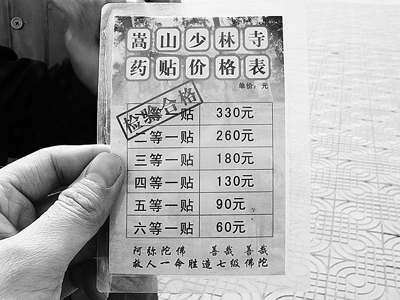 嵩山少林寺
药贴价格表
单价：元
检验合格
一贴 330元
二等一贴 260元
三等一贴 180元
四等一贴 130元
五等一贴 90元
六等一贴 60元
阿弥陀佛 善哉 善哉
救人一命胜造七级佛陀